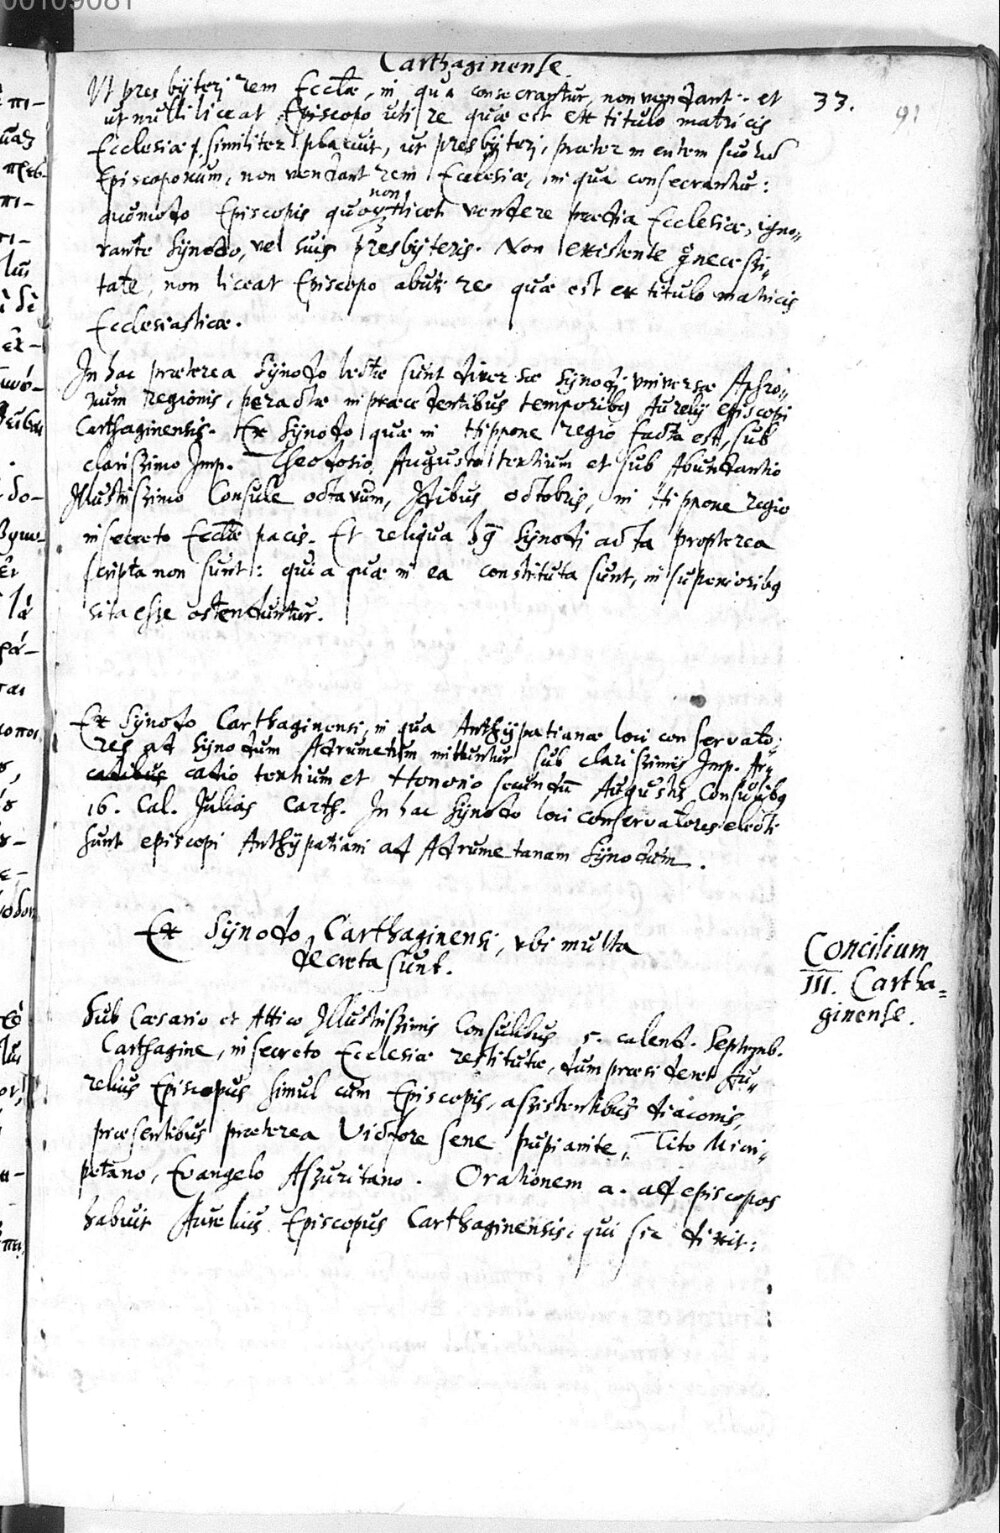 00109081
Carthaginense.
Ut presbyteri rem Eccłæ, in qua consecrantur, non vendant: et 33. 91
ut nulli liceat Episcopo uti re quæ est ex titulo matricis
Ecclesiæ. Similiter placuit, ut presbyteri, præter mentem suorum
Episcoporum, non vendant rem Ecclesiæ, in qua consecrantur:
quomodo Episcopis quoque non licet vendere prædia Ecclesiæ, igno-
rante Synodo, vel suis presbyteris. Non existente necessi-
tate, non liceat Episcopo abuti re quæ est ex titulo matricis
Ecclesiasticæ.
In hac præterea Synodo lectæ sunt diversæ Synodi universæ Afro-
rum regionis, peractæ in præcedentibus temporibus Aurelij episcopi
Carthaginensis. Ex Synodo quæ in Hippone regio facta est, sub
clarissimo Imp. Theodosio Augusto tertium et sub Abundantio
Illustrissimo Consule octavum, Idibus octobris, in Hippone regio
in secreto Eccłæ pacis. Et reliqua Synodi acta propterea
scripta non sunt: quia quæ in ea constituta sunt, in superioribus
sita esse ostenduntur.
Ex Synodo Carthaginensi, in qua Anthypatianæ loci conservato-
res ad Synodum Adrumetum mittuntur sub clarissimis Imp. Ar-
cadio tertium et Honorio secundū Augustis Consulibus
16. Cal. Julias Carth. In hac Synodo loci conservatores electi
sunt episcopi Anthypatiani ad Adrumetanam Synodum.
Ex Synodo Carthaginensi, ubi multa
decreta sunt.
Concilium
III. Cartha-
ginense.
Sub Cæsario et Attico Illustrissimis Consulibus 5. calend. Septemb.
Carthagine, in secreto Ecclesiæ restitutæ, dum præsideret Au-
relius Episcopus simul cum Episcopis, assistentibus diaconis,
præsentibus præterea Victore sene pupianite, Tito Micri-
petano, Evangelo Assuritano. Orationem a. ad episcopos
habuit Aurelius Episcopus Carthaginensis, qui sic dixit: